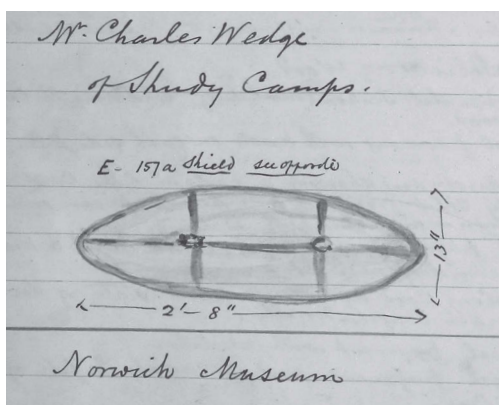 Mr. Charles Wedge
of Shudy Camps.
E- 157a shield see opposite
13"
2'- 8"
Norwich Museum